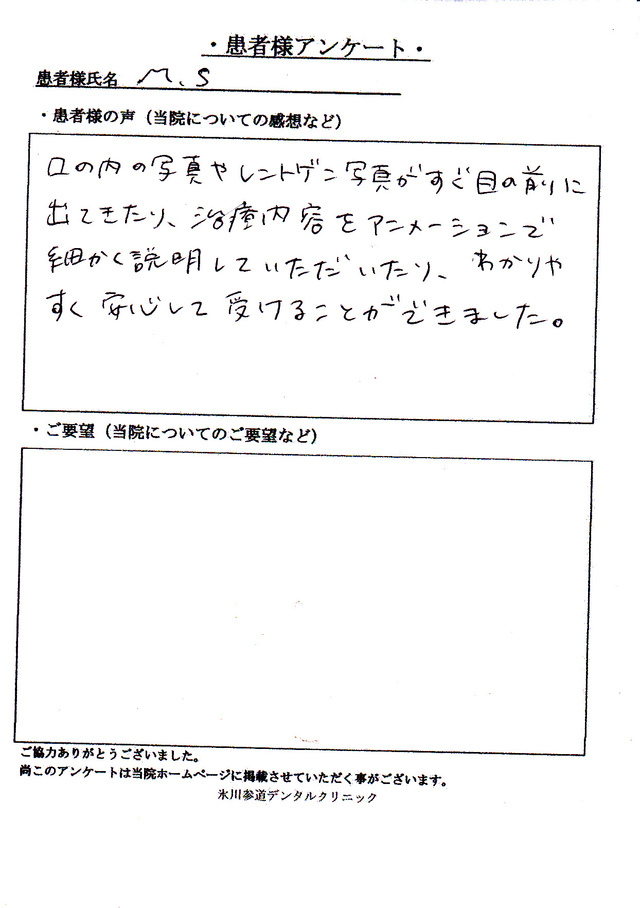 ・患者様アンケート・
患者様氏名 M.S
・患者様の声（当院についての感想など）
口の内の写真やレントゲン写真がすぐ目の前に
出てきたり、治療内容をアニメーションで
細かく説明していただいたり、わかりや
すく安心して受けることができました。
・ご要望（当院についてのご要望など）
ご協力ありがとうございました。
尚このアンケートは当院ホームページに掲載させていただく事がございます。
氷川参道デンタルクリニック